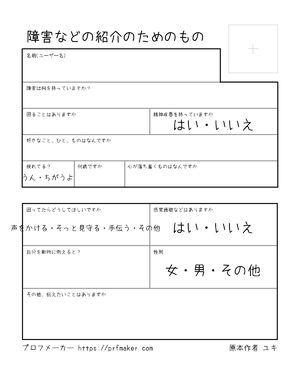 障害などの紹介のためのもの
名前(ユーザー名)
障害は何を持っていますか？
困ることはありますか
精神疾患を持っていますか
はい・いいえ
好きなこと、ひと、ものはなんですか
疲れてる？
うん・ちがうよ
何歳ですか
心が落ち着くものはなんですか
困ってたらどうしてほしいですか
声をかける・そっと見守る・手伝う・その他
感覚過敏などはありますか
はい・いいえ
自分を動物に例えると？
性別
女・男・その他
その他、伝えたいことはありますか
プロフメーカー https://prfmaker.com
原本作者 ユキ